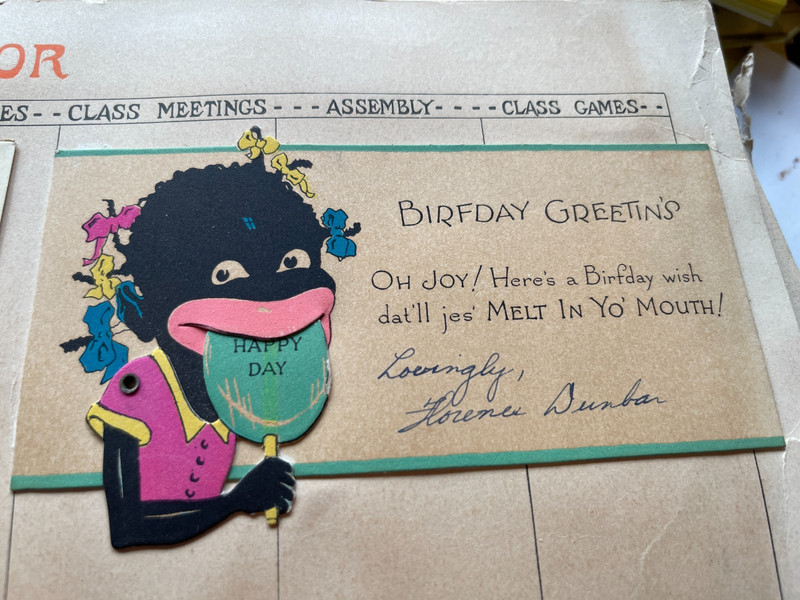 OR
ES - - CLASS MEETINGS - - - ASSEMBLY - - - - CLASS GAMES - -
BIRFDAY GREETIN'S
OH JOY! Here's a Birfday wish
dat'll jes' MELT IN YO' MOUTH!
HAPPY
DAY
Lovingly,
Florence Dunbar